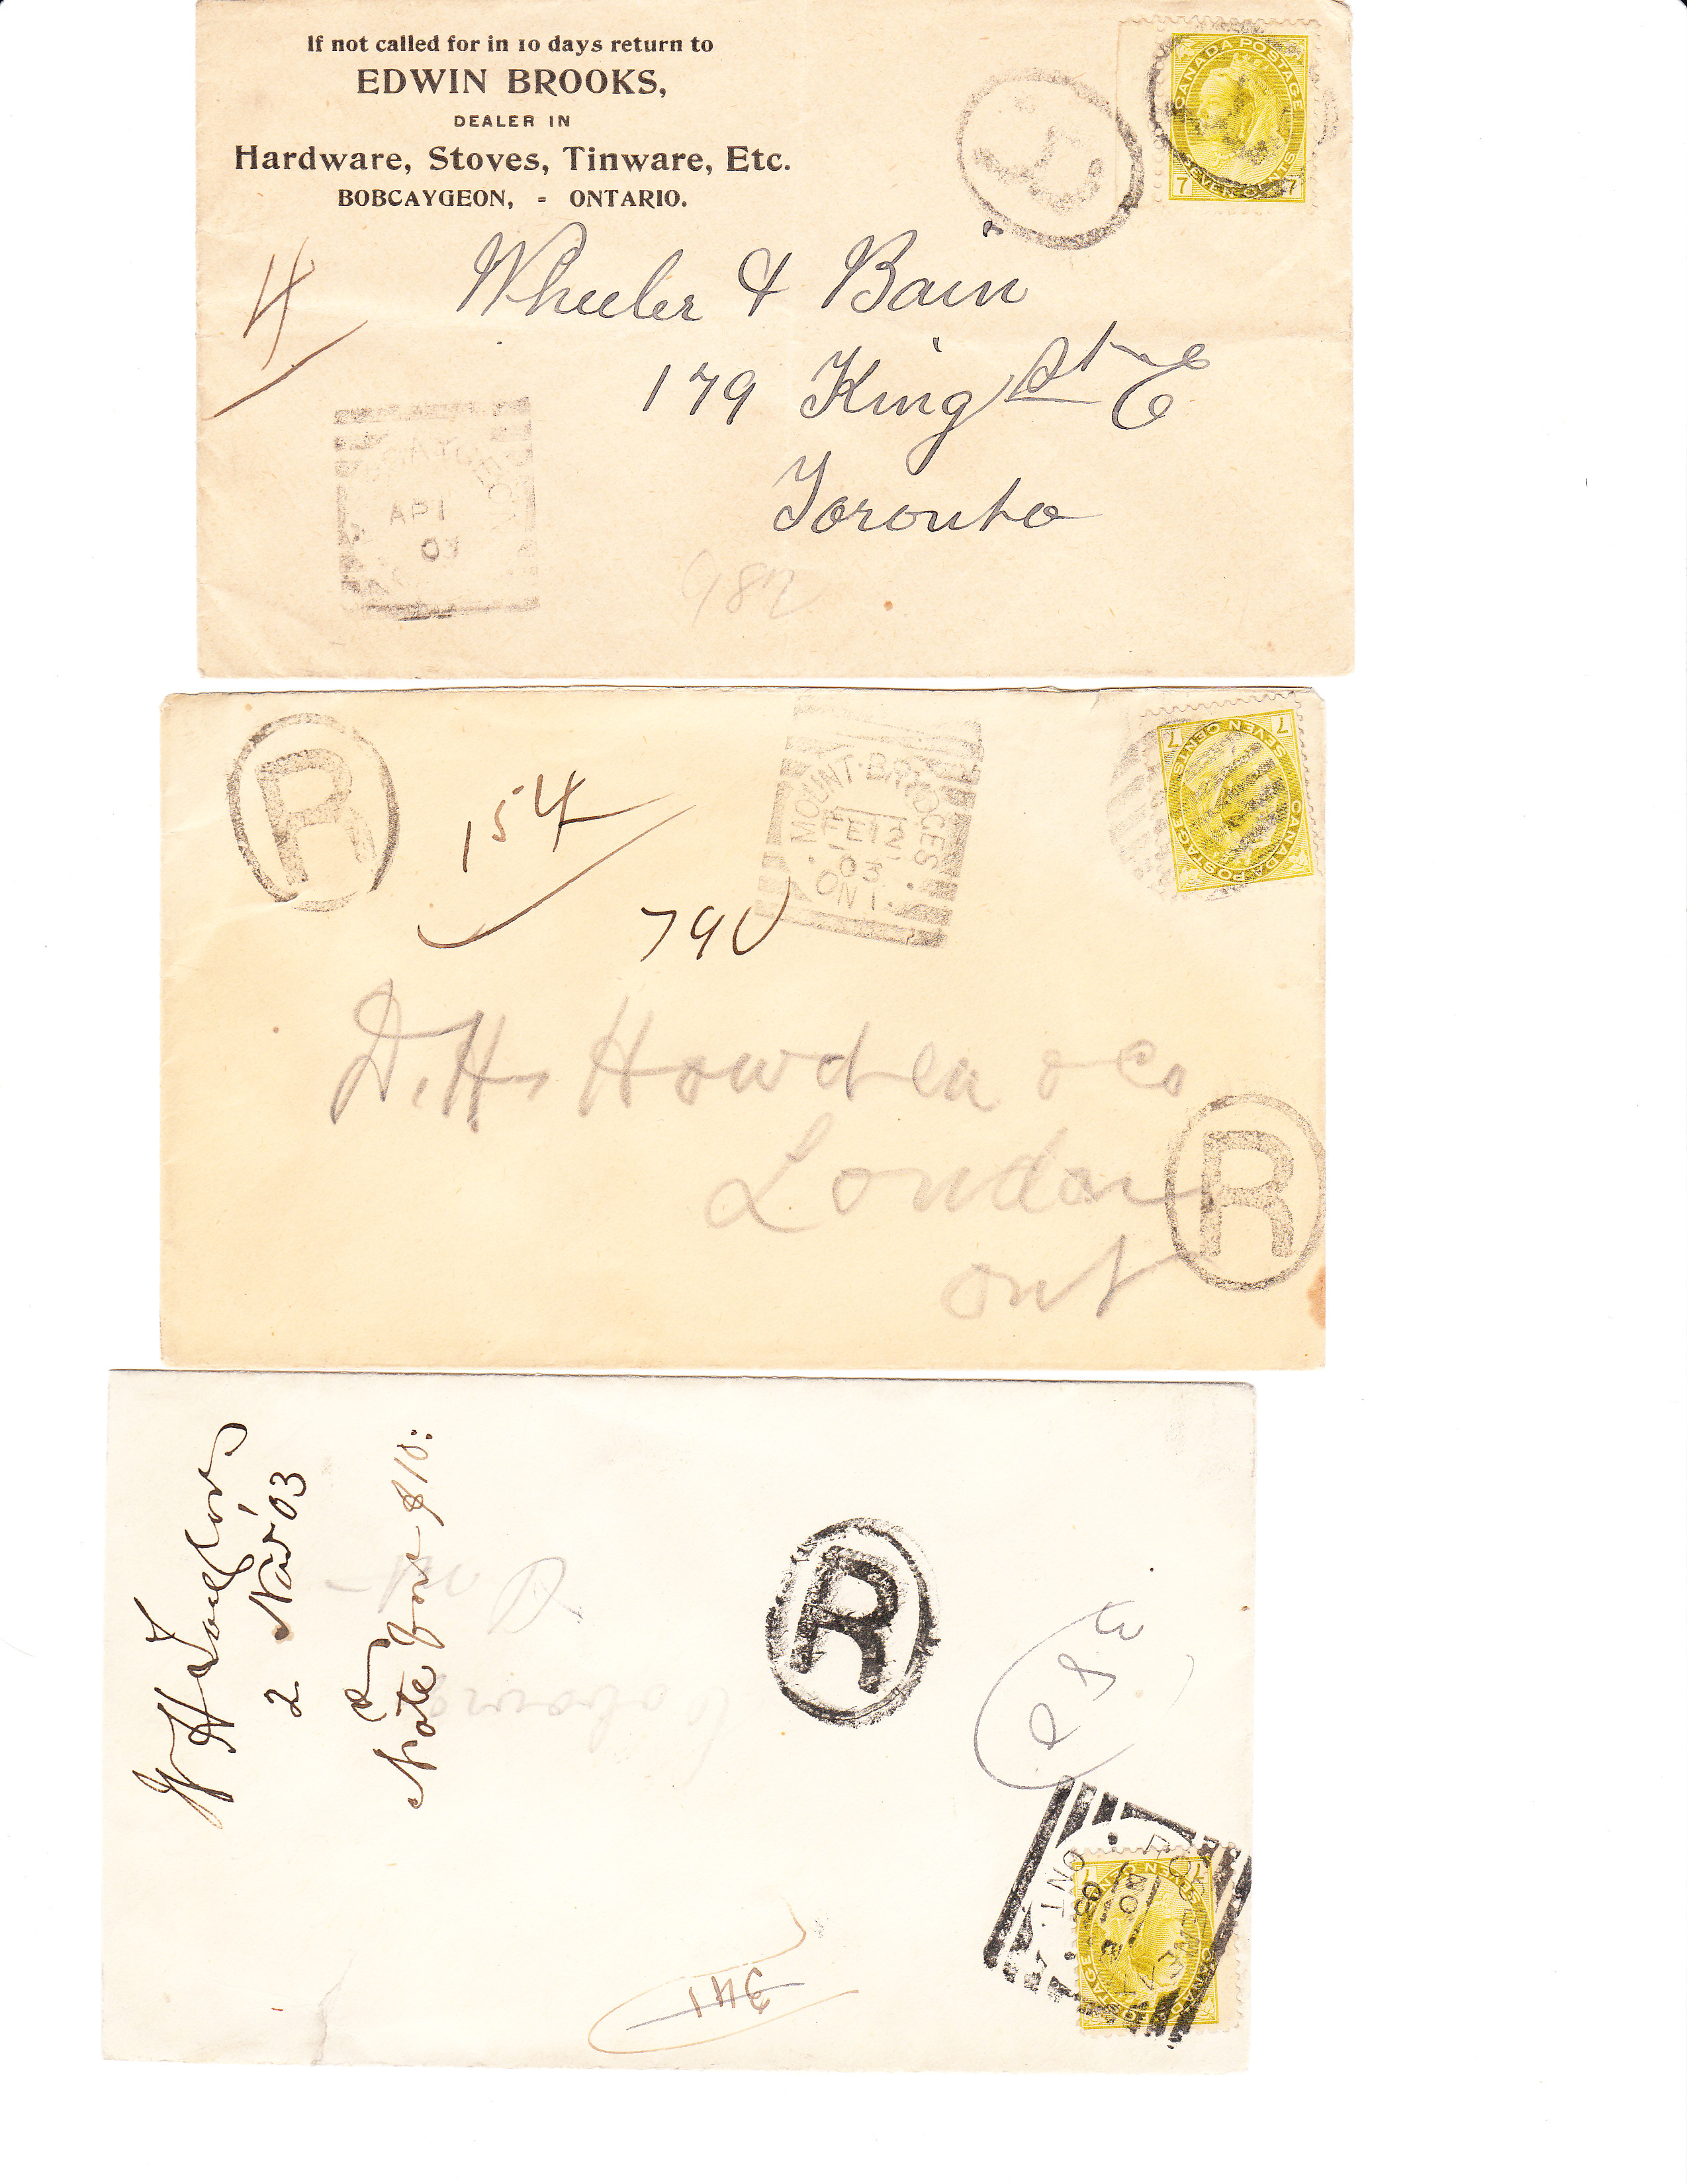 If not called for in 10 days return to
EDWIN BROOKS,
DEALER IN
Hardware, Stoves, Tinware, Etc.
BOBCAYGEON, = ONTARIO.
CANADA POSTAGE
SEVEN CENTS
7 7
4
Wheeler & Bain
179 King St E
Toronto
AP 1
03
982
R
154
MOUNT-BRYDGES
FE 12
03
ONT.
CANADA POSTAGE
SEVEN CENTS
7 7
790
D. H. Howden & Co
London
Ont
R
W H
2 Nov '03
Note for $10:
R
341
ONT.
NO
03
CANADA POSTAGE
SEVEN CENTS